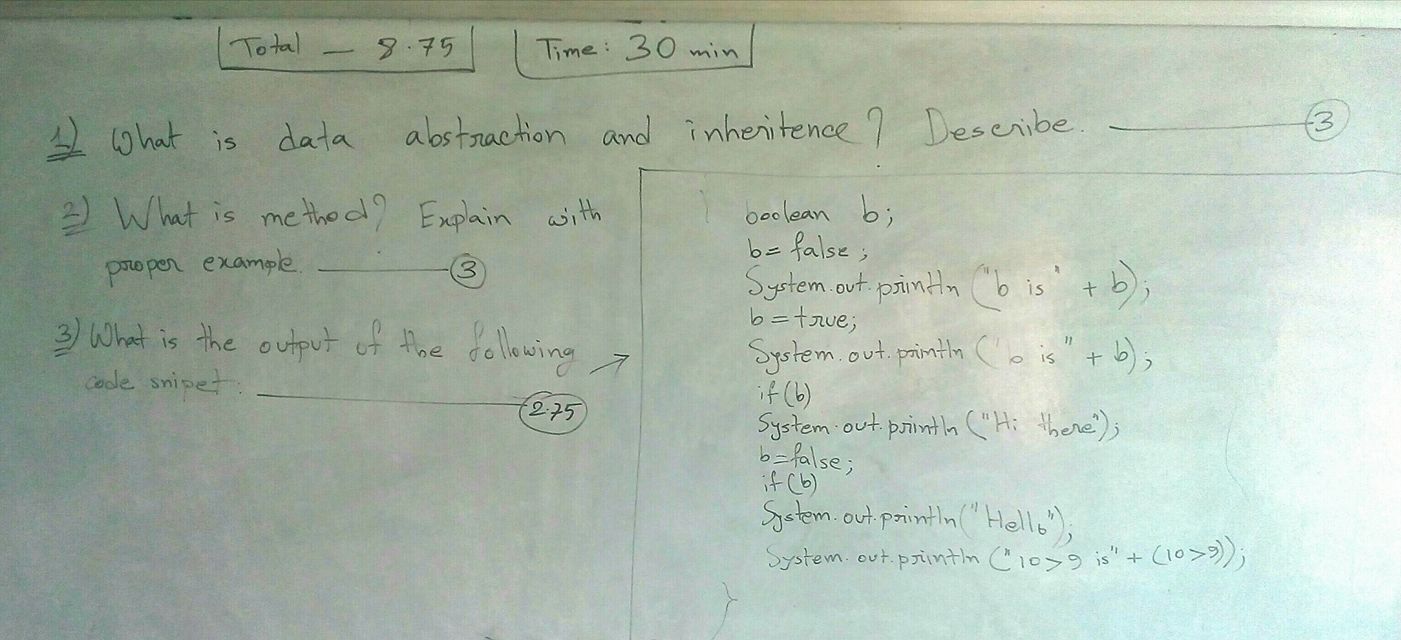 Total — 8.75
Time: 30 min
1) What is data abstraction and inheritence? Describe. — 3
2) What is method? Explain with
proper example. — 3
3) What is the output of the following →
code snipet. — 2.75
boolean b;
b = false;
System.out.println ("b is" + b);
b = true;
System.out.println ("b is" + b);
if (b)
System.out.println ("Hi there");
b = false;
if (b)
System.out.println ("Hello");
System.out.println ("10>9 is" + (10>9));
}